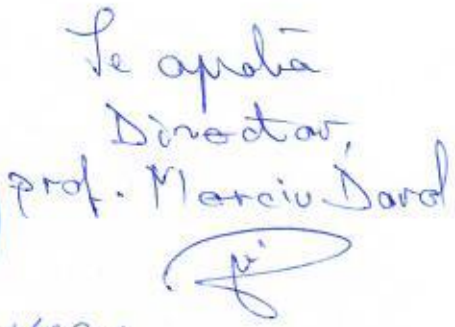 Se aprobă
Director,
prof. Marciu Dorel